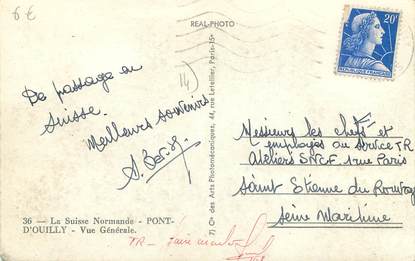 6€
REAL-PHOTO
20F
REPUBLIQUE FRANÇAISE
14)
De passage en
Suisse.
Meilleurs souvenirs
7) Cie des Arts Photomécaniques, 44, rue Letellier, Paris-15e
Messieurs les chefs et
employés du service TR
Ateliers SNCF 1 rue Paris
Saint Etienne du Rouvray
Seine Maritime
36 — La Suisse Normande - PONT-
D'OUILLY - Vue Générale.
TR -